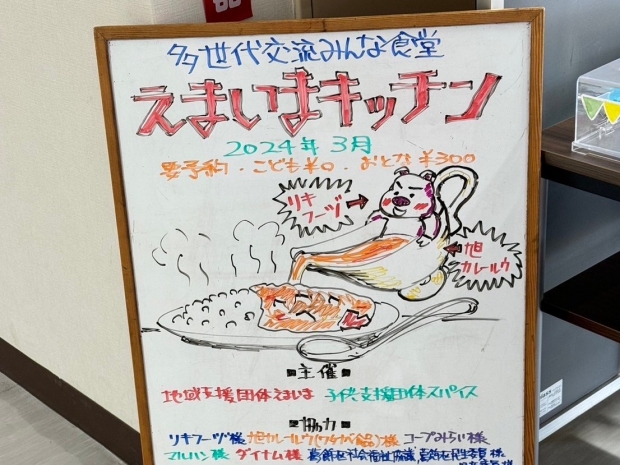 多世代交流みんな食堂
えまいまキッチン
2024年3月
要予約・こども¥0・おとな¥300
リキフーヅ
旭カレールウ
主催
地域支援団体えまいま 子供支援団体スパイス
協力
リキフーヅ様 旭カレールウ(ワタベ食品)様 コープみらい様
マルハン様 ダイナム様 葛飾区社会福祉協議